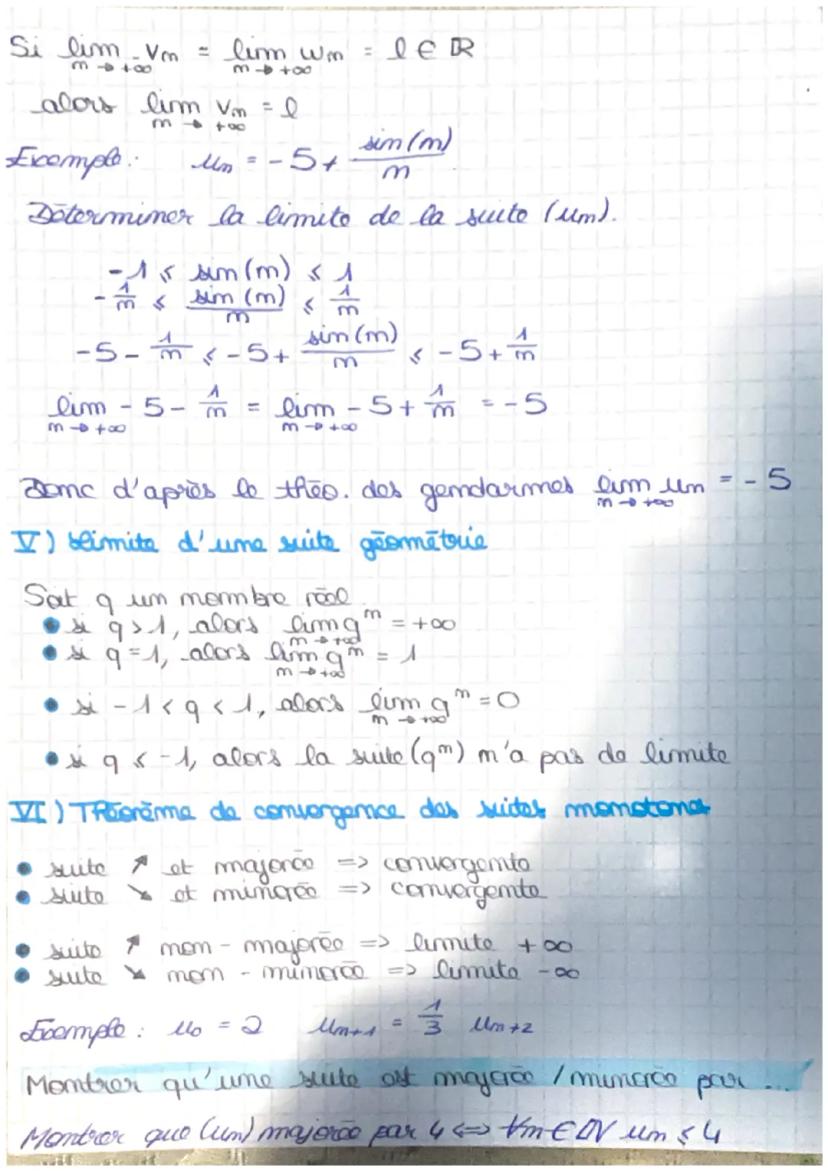 Si lim vn = lim wn = l ∈ ℝ
n→+∞ n→+∞
alors lim vn = l
n→+∞
Exemple : un = -5 + sin(n)/n
Déterminer la limite de la suite (un).
-1 ≤ sin(n) ≤ 1
-1/n ≤ sin(n)/n ≤ 1/n
-5 - 1/n ≤ -5 + sin(n)/n ≤ -5 + 1/n
lim -5 - 1/n = lim -5 + 1/n = -5
n→+∞ n→+∞
Donc d'après le théo. des gendarmes lim un = -5
n→+∞
V) Limite d'une suite géométrie
Soit q un nombre réel
• si q > 1, alors lim qⁿ = +∞
n→+∞
• si q = 1, alors lim qⁿ = 1
n→+∞
• si -1 < q < 1, alors lim qⁿ = 0
n→+∞
• si q ≤ -1, alors la suite (qⁿ) n'a pas de limite
VI) Théorème de convergence des suites monotones
• suite ↗ et majorée => convergente
• suite ↘ et minorée => convergente
• suite ↗ non-majorée => limite +∞
• suite ↘ non-minorée => limite -∞
Exemple : u0 = 2 un+1 = 1/3 un+2
Montrer qu'une suite est majorée / minorée par ...
Montrer que (un) majorée par 4 <=> ∀n ∈ ℕ un ≤ 4